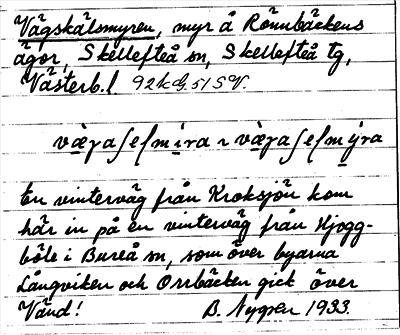 Vägskälsmyren, myr å Rönnbäckens
ägor, Skellefteå sn, Skellefteå tg,
Västerb.l. 92kG.51SV.
væγaʃelmira ~ væγaʃelmy̆ra
En vinterväg från Kroksjön kom
här in på en vinterväg från Hjogg-
böle i Bureå sn, som över byarna
Långviken och Orrbäcken gick över
Vänd! B. Nygren 1933.